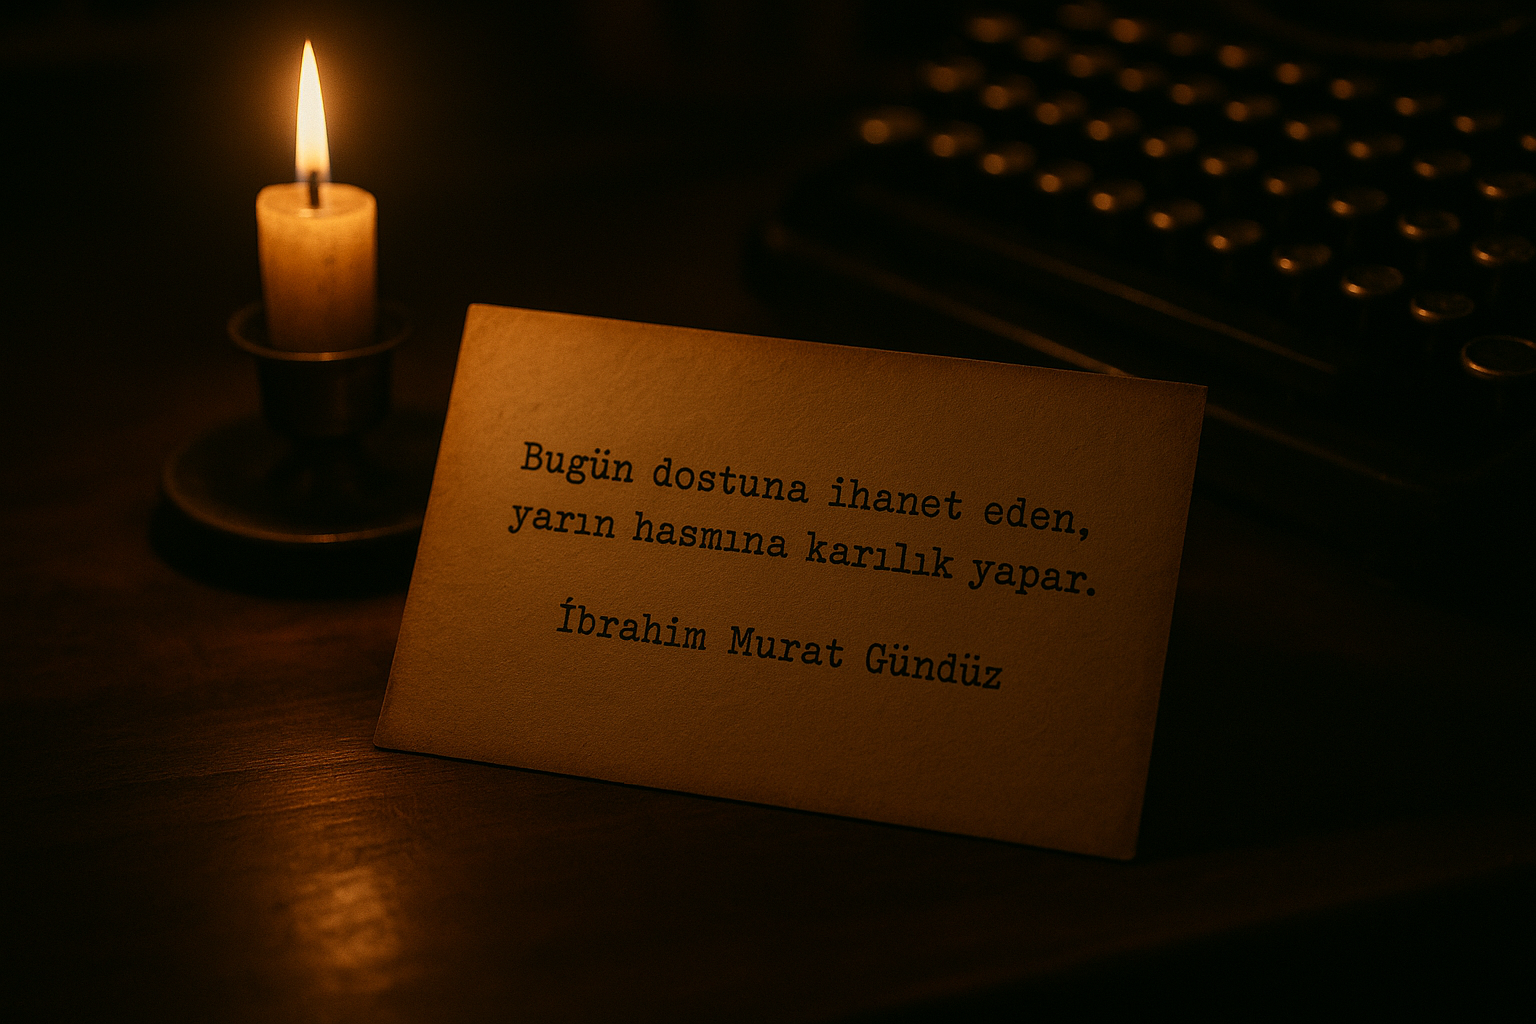 Bugün dostuna ihanet eden,
yarın hasmına karılık yapar.
İbrahim Murat Gündüz